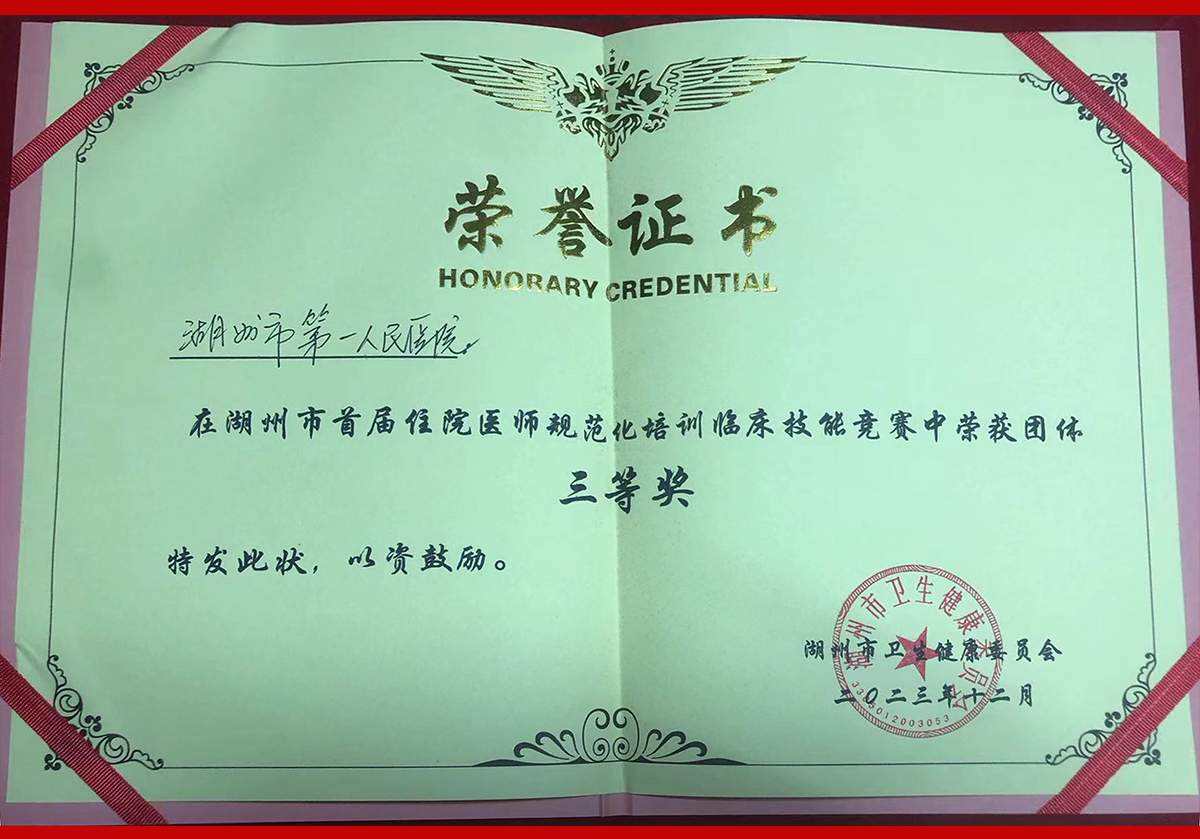 荣誉证书
HONORARY CREDENTIAL
湖州市第一人民医院:
在湖州市首届住院医师规范化培训临床技能竞赛中荣获团体
三等奖
特发此状,以资鼓励。
湖州市卫生健康委员会
二〇二三年十二月
湖州市卫生健康委员会